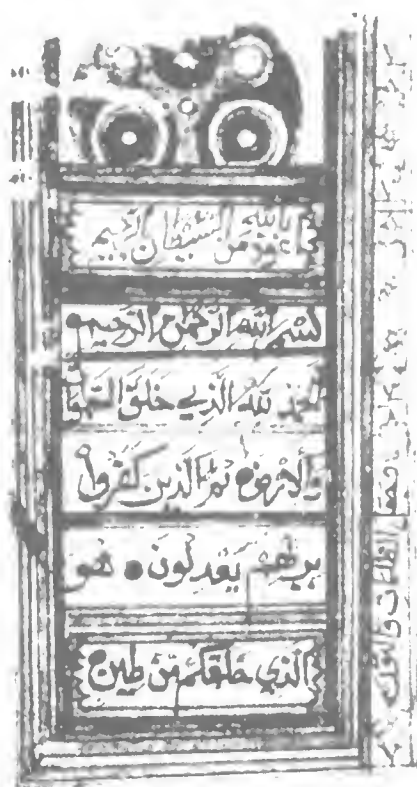 أعوذ بالله من الشيطان الرجيم
بسم الله الرحمن الرحيم
الحمد لله الذي خلق السموات
والأرض ثم الذين كفروا
بربهم يعدلون ● هو
الذي خلقكم من طين
الظلمات والنور